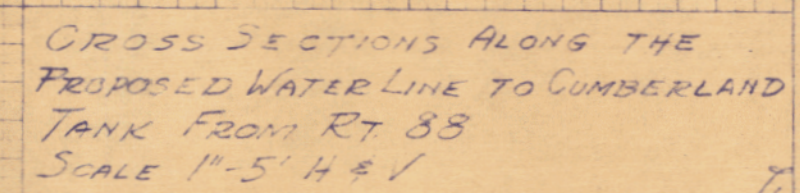 CROSS SECTIONS ALONG THE
PROPOSED WATER LINE TO CUMBERLAND
TANK FROM RT. 88
SCALE 1"-5' H & V